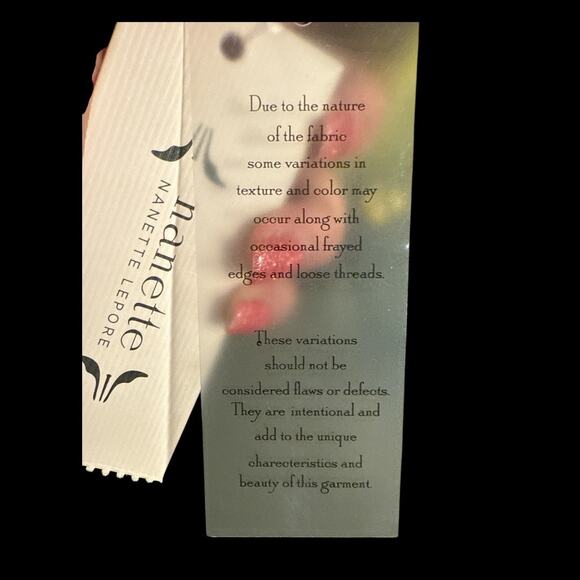 nanette
NANETTE LEPORE
Due to the nature
of the fabric
some variations in
texture and color may
occur along with
occasional frayed
edges and loose threads.
These variations
should not be
considered flaws or defects.
They are intentional and
add to the unique
charecteristics and
beauty of this garment.